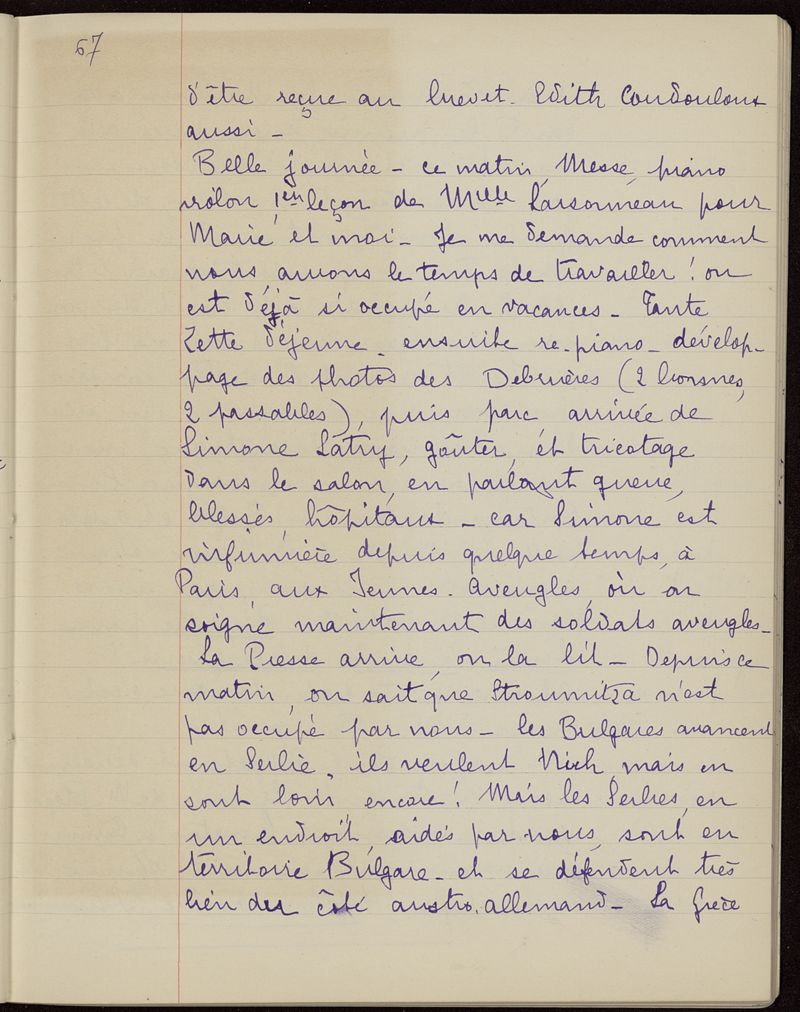 67
d'être reçue au brevet. Edith Coudouloux
aussi -
Belle journée - ce matin, Messe, piano
violon, 1ère leçon de Melle Sarsonneau pour
Marie et moi - Je me demande comment
nous aurons le temps de travailler ! on
est déjà si occupé en vacances - Tante
Zette déjeune - ensuite re-piano - dévelop-
page des photos des Debruères (2 bonnes,
2 passables), puis parc, arrivée de
Simone Latry, goûter, et tricotage
dans le salon, en parlant guerre,
blessés, hôpitaux - car Simone est
infirmière depuis quelque temps, à
Paris, aux Jeunes-Aveugles, où on
soigne maintenant des soldats aveugles -
La Presse arrive, on la lit - Depuis ce
matin, on sait que Stroumitza n'est
pas occupé par nous - les Bulgares avancent
en Serbie, ils veulent Nich, mais en
sont loin encore ! Mais les Serbes, en
un endroit, aidés par nous, sont en
territoire Bulgare - et se défendent très
bien du côté austro-allemand - La Grèce